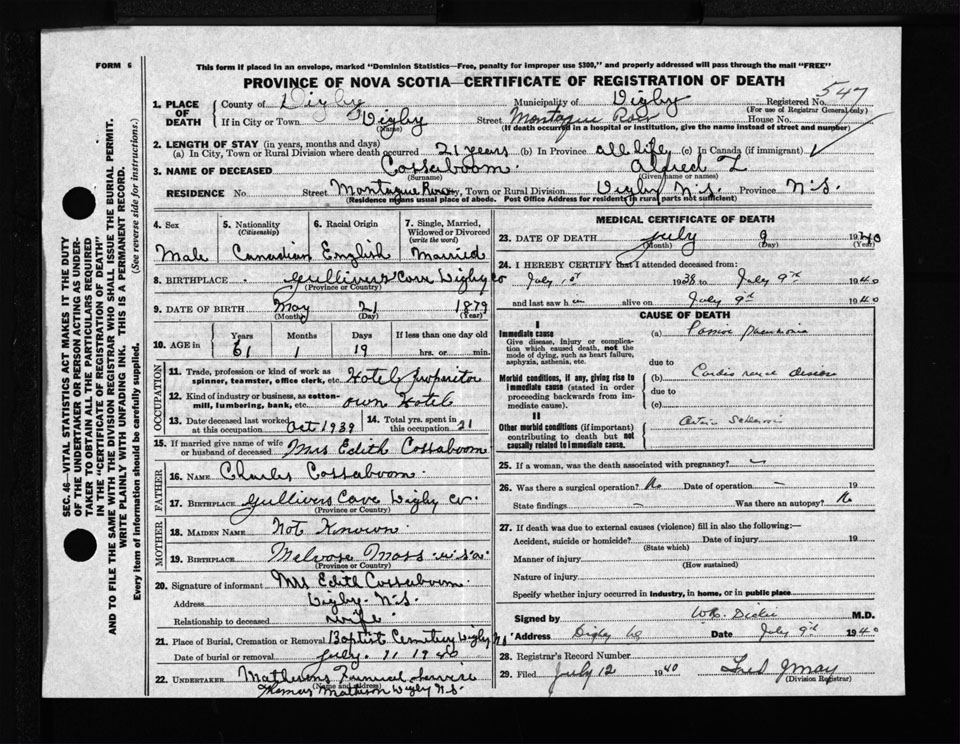 FORM 6
This form if placed in an envelope, marked "Dominion Statistics—Free, penalty for improper use $300," and properly addressed will pass through the mail "FREE"
PROVINCE OF NOVA SCOTIA—CERTIFICATE OF REGISTRATION OF DEATH
547
1. PLACE OF DEATH
County of Digby Municipality of Digby Registered No.
(For use of Registrar General only)
If in City or Town Digby Street Montague Row House No.
(Name) (If death occurred in a hospital or institution, give the name instead of street and number)
2. LENGTH OF STAY (in years, months and days)
(a) In City, Town or Rural Division where death occurred 21 years (b) In Province all life (c) In Canada (if immigrant)
3. NAME OF DECEASED Cossaboom Alfred
(Surname) (Given name or names)
RESIDENCE No. Street Montague Row City, Town or Rural Division Digby N.S. Province N.S.
(Residence means usual place of abode. Post Office Address for residents in rural parts not sufficient)
4. Sex 5. Nationality (Citizenship) 6. Racial Origin 7. Single, Married, Widowed or Divorced (write the word)
Male Canadian English Married
8. BIRTHPLACE Gullivers Cove Digby Co
(Province or Country)
9. DATE OF BIRTH May 21 1879
(Month) (Day) (Year)
10. AGE in Years Months Days If less than one day old
61 1 19 hrs. or min.
OCCUPATION
11. Trade, profession or kind of work as spinner, teamster, office clerk, etc. Hotel Propritor
12. Kind of industry or business, as cotton-mill, lumbering, bank, etc. own Hotel
13. Date deceased last worked at this occupation Oct 1939 14. Total yrs. spent in this occupation 21
15. If married give name of wife or husband of deceased Mrs Edith Cossaboom
FATHER
16. NAME Charles Cossaboom
17. BIRTHPLACE Gullivers Cove Digby Co.
(Province or Country)
MOTHER
18. MAIDEN NAME Not Known
19. BIRTHPLACE Melrose Mass U.S.A.
(Province or Country)
20. Signature of informant Mrs Edith Cossaboom
Address Digby N.S.
Relationship to deceased wife
21. Place of Burial, Cremation or Removal Baptist Cemetery Digby N.S
Date of burial or removal July 11 1940
22. UNDERTAKER Mathesons Funeral Service
(Name and address)
Thomas Matheson Digby N.S.
MEDICAL CERTIFICATE OF DEATH
23. DATE OF DEATH July 9 1940
(Month) (Day) (Year)
24. I HEREBY CERTIFY that I attended deceased from:
July 1st 1938 to July 9th 1940
and last saw h im alive on July 9th 1940
CAUSE OF DEATH
I
Immediate cause
Give disease, injury or complication which caused death, not the mode of dying, such as heart failure, asphyxia, asthenia, etc.
(a) Pneumonia
due to
Morbid conditions, if any, giving rise to immediate cause (stated in order proceeding backwards from immediate cause).
(b) Cardio renal disease
due to
(c)
II
Other morbid conditions (if important) contributing to death but not causally related to immediate cause.
Arterio Sclerosis
25. If a woman, was the death associated with pregnancy? –
26. Was there a surgical operation? No Date of operation – 19
State findings – Was there an autopsy? No
27. If death was due to external causes (violence) fill in also the following:—
Accident, suicide or homicide? Date of injury 19
(State which)
Manner of injury
(How sustained)
Nature of injury
Specify whether injury occurred in industry, in home, or in public place
Signed by Dickie M.D.
Address Digby NS Date July 9th 1940
28. Registrar's Record Number
29. Filed July 12 1940
(Division Registrar)
SEC. 46—VITAL STATISTICS ACT MAKES IT THE DUTY
OF THE UNDERTAKER OR PERSON ACTING AS UNDER-
TAKER TO OBTAIN ALL THE PARTICULARS REQUIRED
IN THE "CERTIFICATE OF REGISTRATION OF DEATH"
AND TO FILE THE SAME WITH THE DIVISION REGISTRAR WHO SHALL ISSUE THE BURIAL PERMIT.
WRITE PLAINLY WITH UNFADING INK. THIS IS A PERMANENT RECORD.
Every item of information should be carefully supplied. (See reverse side for instructions.)